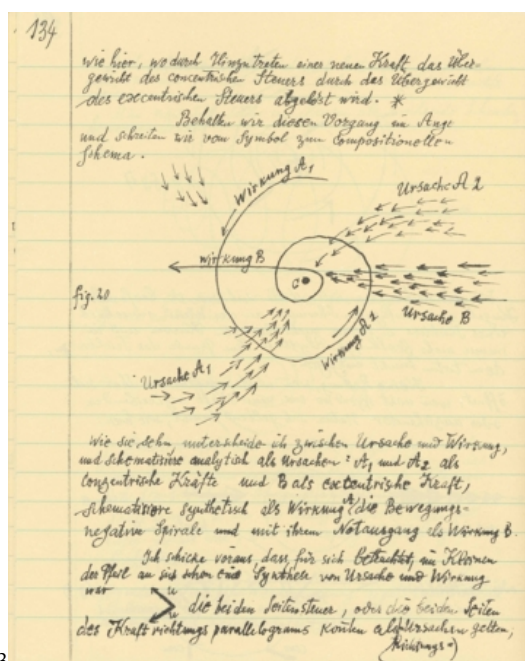 134
wie hier, wo durch Hinzutreten einer neuen Kraft das Über-
gewicht des concentrischen Steuers durch das Übergewicht
des excentrischen Steuers abgelöst wird. *
Behalten wir diesen Vorgang im Auge
und schreiten wir vom Symbol zum compositionellen
Schema.
Wirkung A1
Ursache A2
Wirkung B
C
fig. 20
Ursache B
Wirkung A2
Ursache A1
Wie sie sehn, unterscheide ich zwischen Ursache und Wirkung,
und schematisiere analytisch als Ursachen: A1 und A2 als
conzentrische Kräfte und B als excentrische Kraft,
schematisiere synthetisch als Wirkung A die Bewegungs-
negative Spirale und mit ihrem Notausgang als Wirkung B.
Ich schicke voraus, dass, für sich betrachtet, im Kleinen
der Pfeil an sich schon eine Synthese von Ursache und Wirkung
war
u
u
die beiden Seitensteuer, oder die beiden Seiten
des Kraftrichtungs parallelograms konten als Ursachen gelten,
Richtungs-